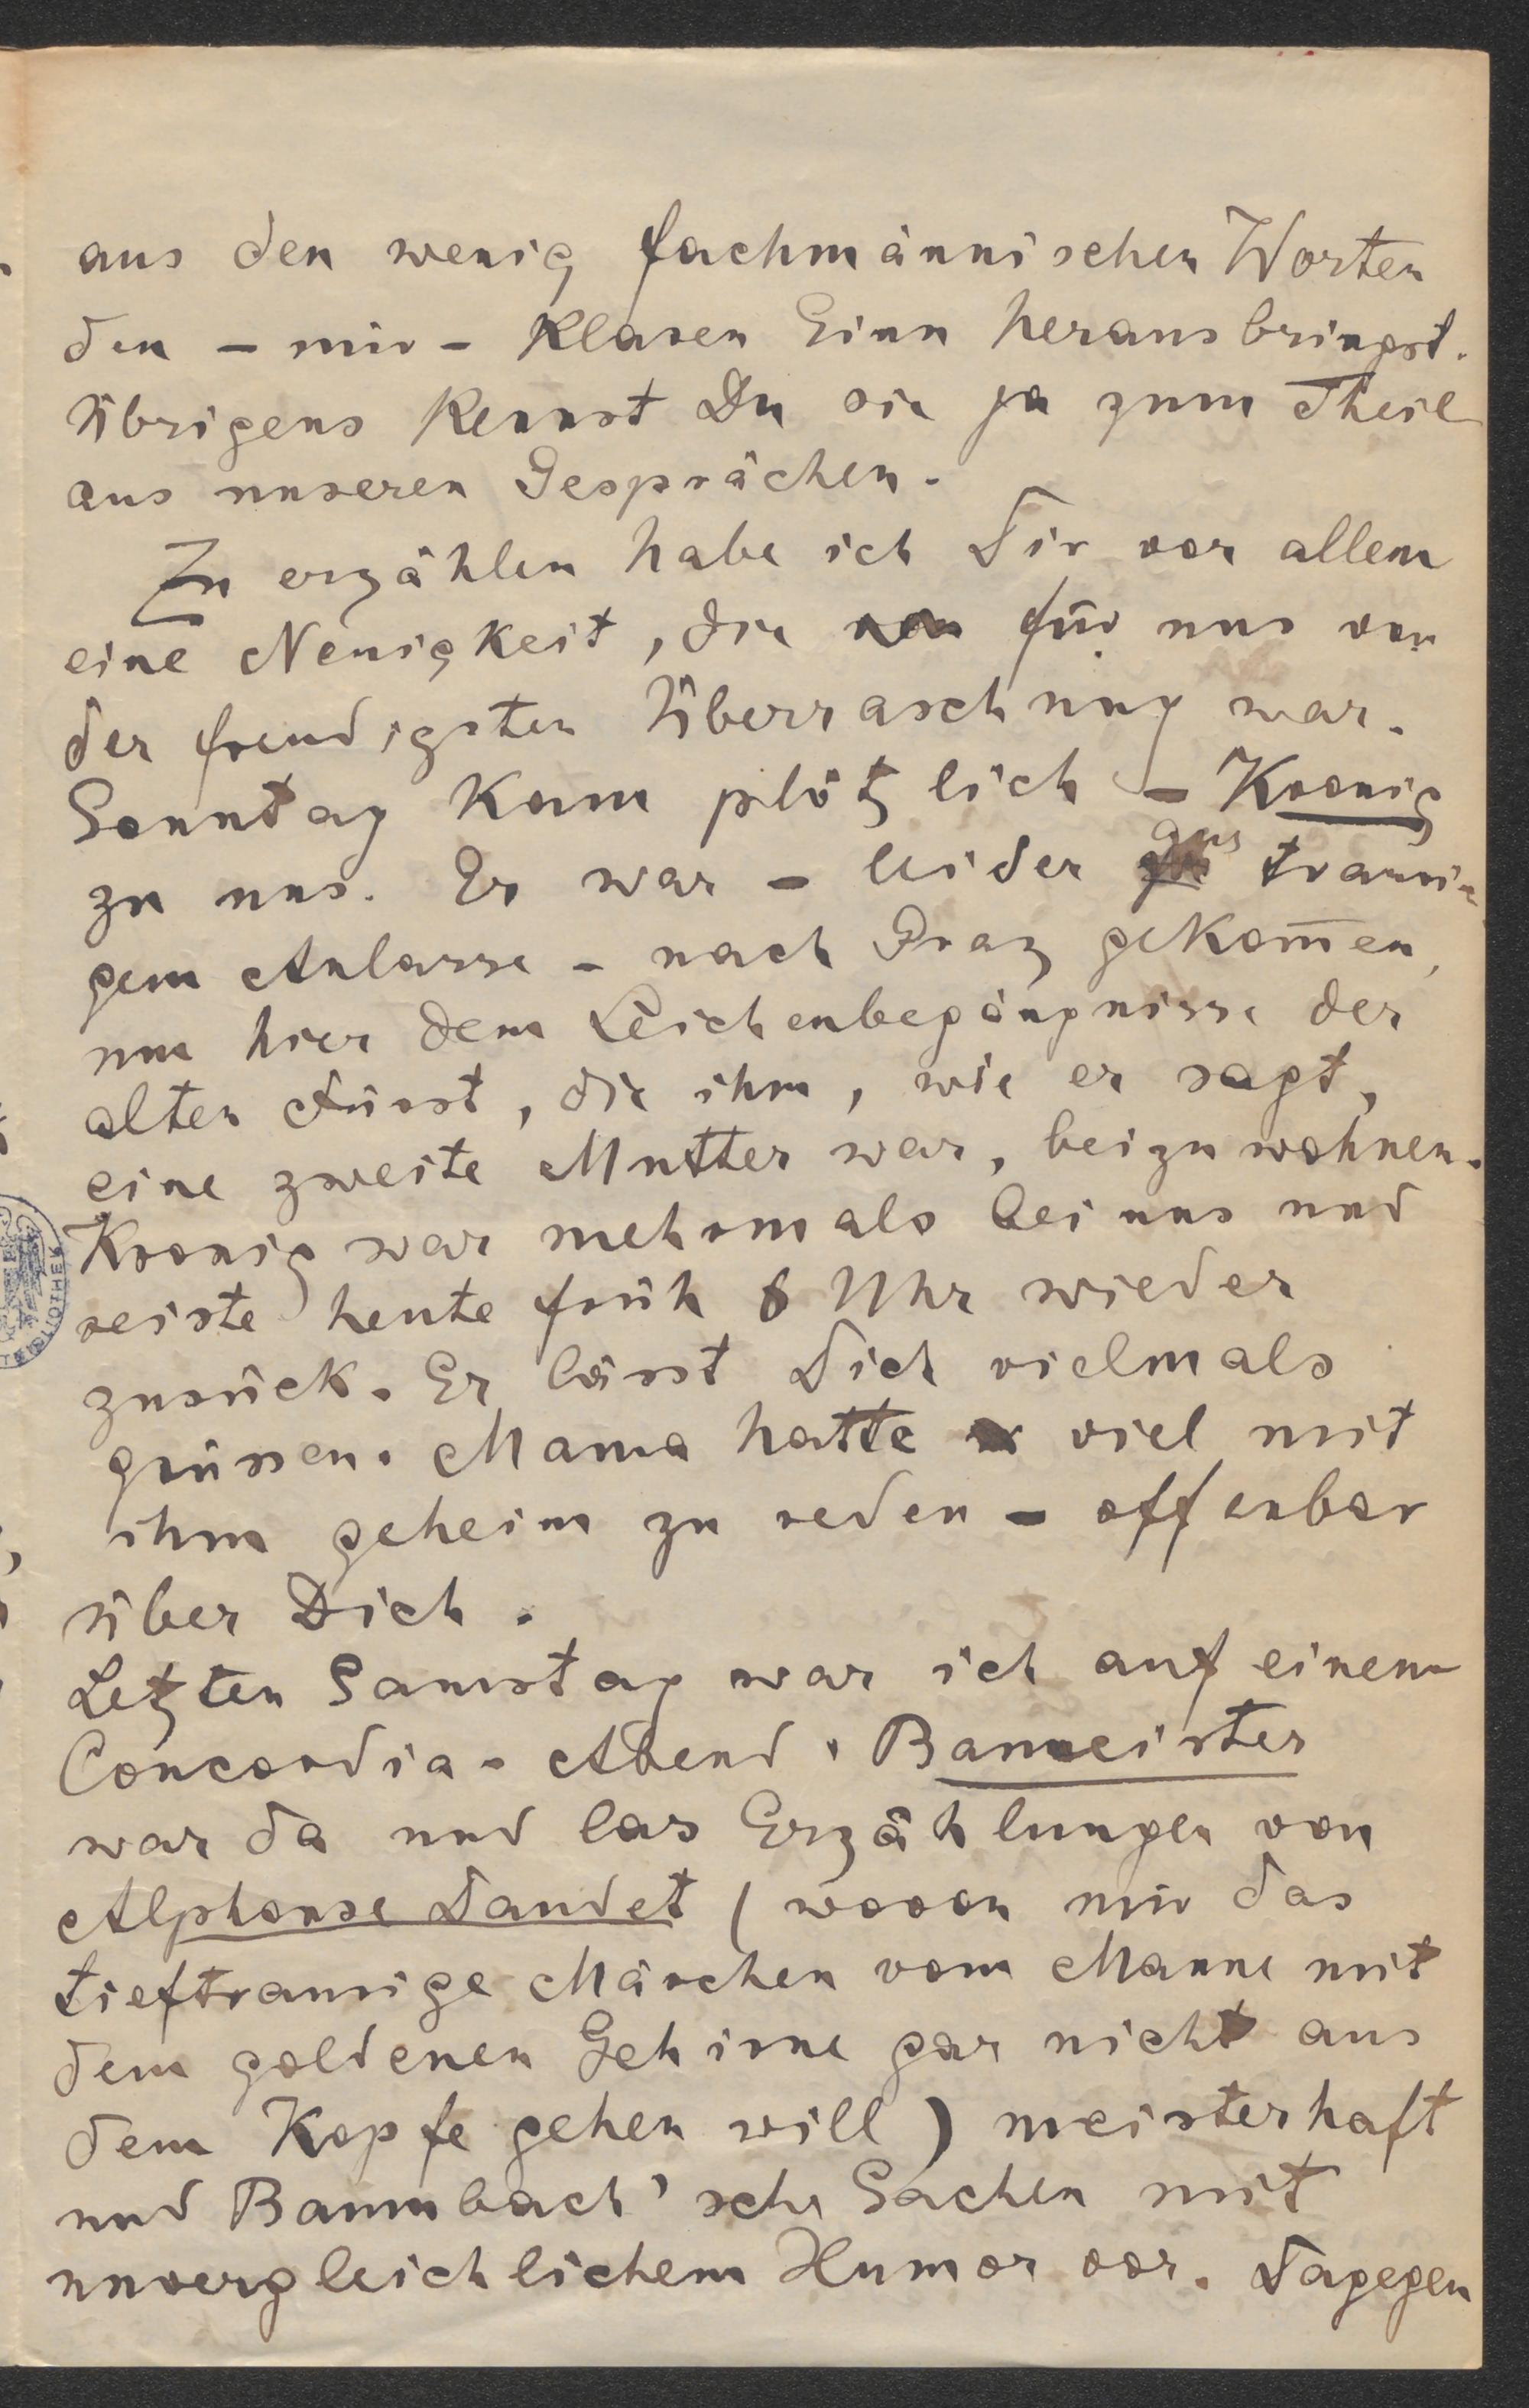 aus den wenig fachmännischen Worten
den – mir – klaren Sinn herausbringst.
Übrigens kennst Du sie ja zum Theil
aus unseren Gesprächen.
Zu erzählen habe ich Dir vor allem
eine Neuigkeit, die für uns von
der freudigsten Überraschung war.
Sonntag kam plötzlich – Kronig
zu uns. Er war – leider aus trauri-
gem Anlasse – nach Graz gekom̄en,
um hier dem Leichenbegängnisse der
alten Fürst, die ihm, wie er sagt,
eine zweite Mutter war, beizuwohnen.
Kronig war mehrmals bei uns und
reiste heute früh 6 Uhr wieder
zurück. Er lässt Dich vielmals
grüssen. Mama hatte viel mit
ihm geheim zu reden – offenbar
über Dich.
Letzten Samstag war ich auf einem
Concordia-Abend. Baumeister
war da und las Erzählungen von
Alphonse Daudet (wovon mir das
tieftraurige Märchen vom Manne mit
dem goldenen Gehirne gar nicht aus
dem Kopfe gehen will) meisterhaft
und Baumbach'sche Sachen mit
unvergleichlichem Humor vor. Dagegen